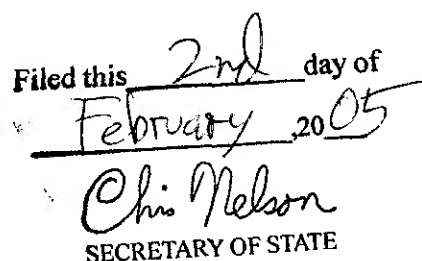 Filed this 2nd day of
February ,2005
Chris Nelson
SECRETARY OF STATE